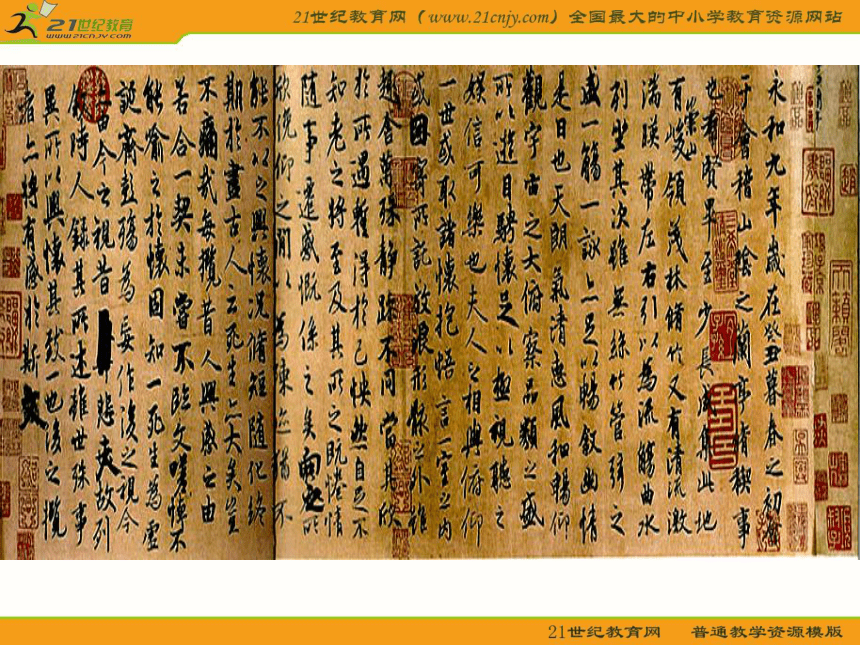 21世纪教育网
www.21cnjy.com
21世纪教育网（www.21cnjy.com）全国最大的中小学教育资源网站
永和九年歲在癸丑暮春之初會
于會稽山陰之蘭亭脩禊事
也羣賢畢至少長咸集此地
有崇山峻領茂林脩竹又有清流激
湍暎帶左右引以為流觴曲水
列坐其次雖無絲竹管弦之
盛一觴一詠亦足以暢敘幽情
是日也天朗氣清惠風和暢仰
觀宇宙之大俯察品類之盛
所以遊目騁懷足以極視聽之
娛信可樂也夫人之相與俯仰
一世或取諸懷抱悟言一室之內
或因寄所託放浪形骸之外雖
趣舍萬殊靜躁不同當其欣
於所遇蹔得於己怏然自足不
知老之將至及其所之既惓情
隨事遷感慨係之矣向之所
欣俛仰之閒以為陳迹猶不
能不以之興懷況脩短隨化終
期於盡古人云死生亦大矣豈
不痛哉每攬昔人興感之由
若合一契未嘗不臨文嗟悼不
能喻之於懷固知一死生為虛
誕齊彭殤為妄作後之視今
由今之視昔悲夫故列
敘時人錄其所述雖世殊事
異所以興懷其致一也後之攬
者亦將有感於斯文
21世纪教育网 普通教学资源模版